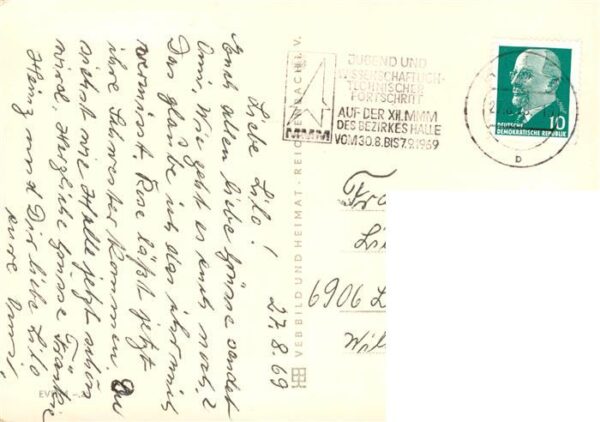 Liebe Lilo! 27.8.69
Euch allen liebe Grüsse sendet
Omi. Wie geht es Euch noch?
Das glaube ich das ihr mich
vermisst. Rose läßt jetzt
ihre Schwester kommen. Du
siehst wie Halle jetzt schön
wird. Herzliche Grüsse
Heinz und Dir liebe Lilo
eure Omi.
VEB BILD UND HEIMAT · REICHENBACH I. V.
JUGEND UND
WISSENSCHAFTLICH-
TECHNISCHER
FORTSCHRITT
AUF DER XII. MMM
DES BEZIRKES HALLE
VOM 30.8. BIS 7.9.1969
MMM
10
DEUTSCHE
DEMOKRATISCHE REPUBLIK
D
Fr
Li
6906 L
Wil